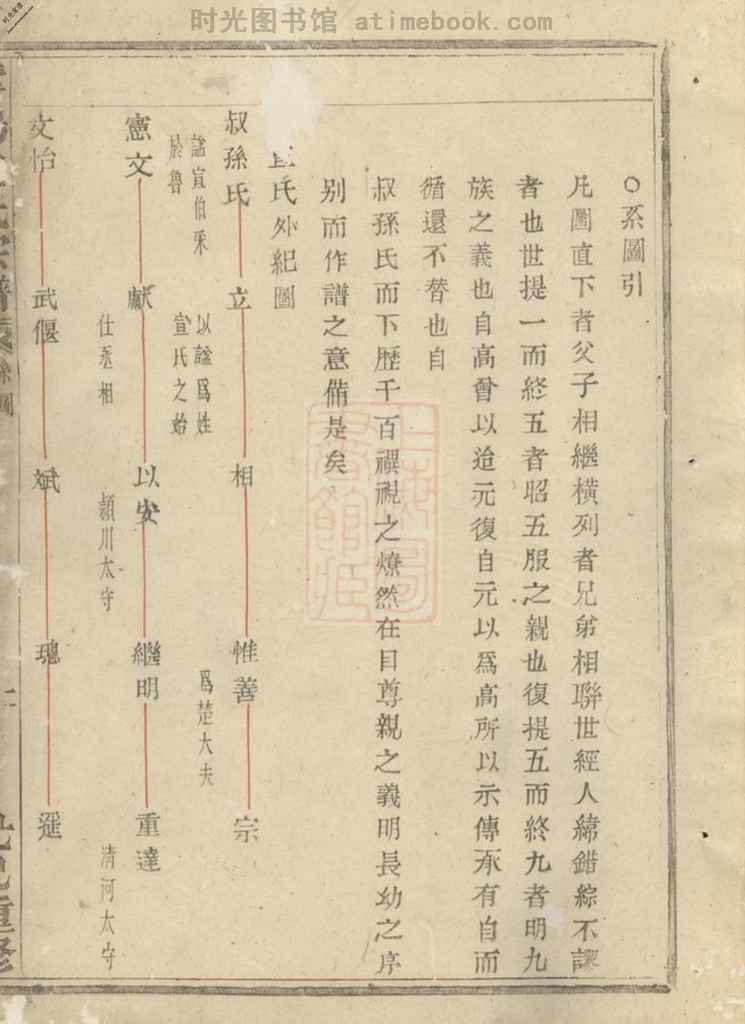 时光图书馆 atimebook.com
○系圖引
凡圖直下者父子相繼橫列者兄弟相聯世經人緯錯綜不謬
者也世提一而終五者昭五服之親也復提五而終九者明九
族之義也自高曾以迨元復自元以爲高所以示傳承有自而
循還不替也自
叔孫氏而下歷千百禩視之燎然在目尊親之義明長幼之序
别而作譜之意備是矣
氏外紀圖
叔孫氏 立 相 惟善 宗
諡宣伯采
於魯
以諡爲姓
宣氏之始
爲楚大夫
憲文 獻 以安 繼明 重達
仕丞相
潁川太守
清河太守
文怡 武偃 斌 璁 遜